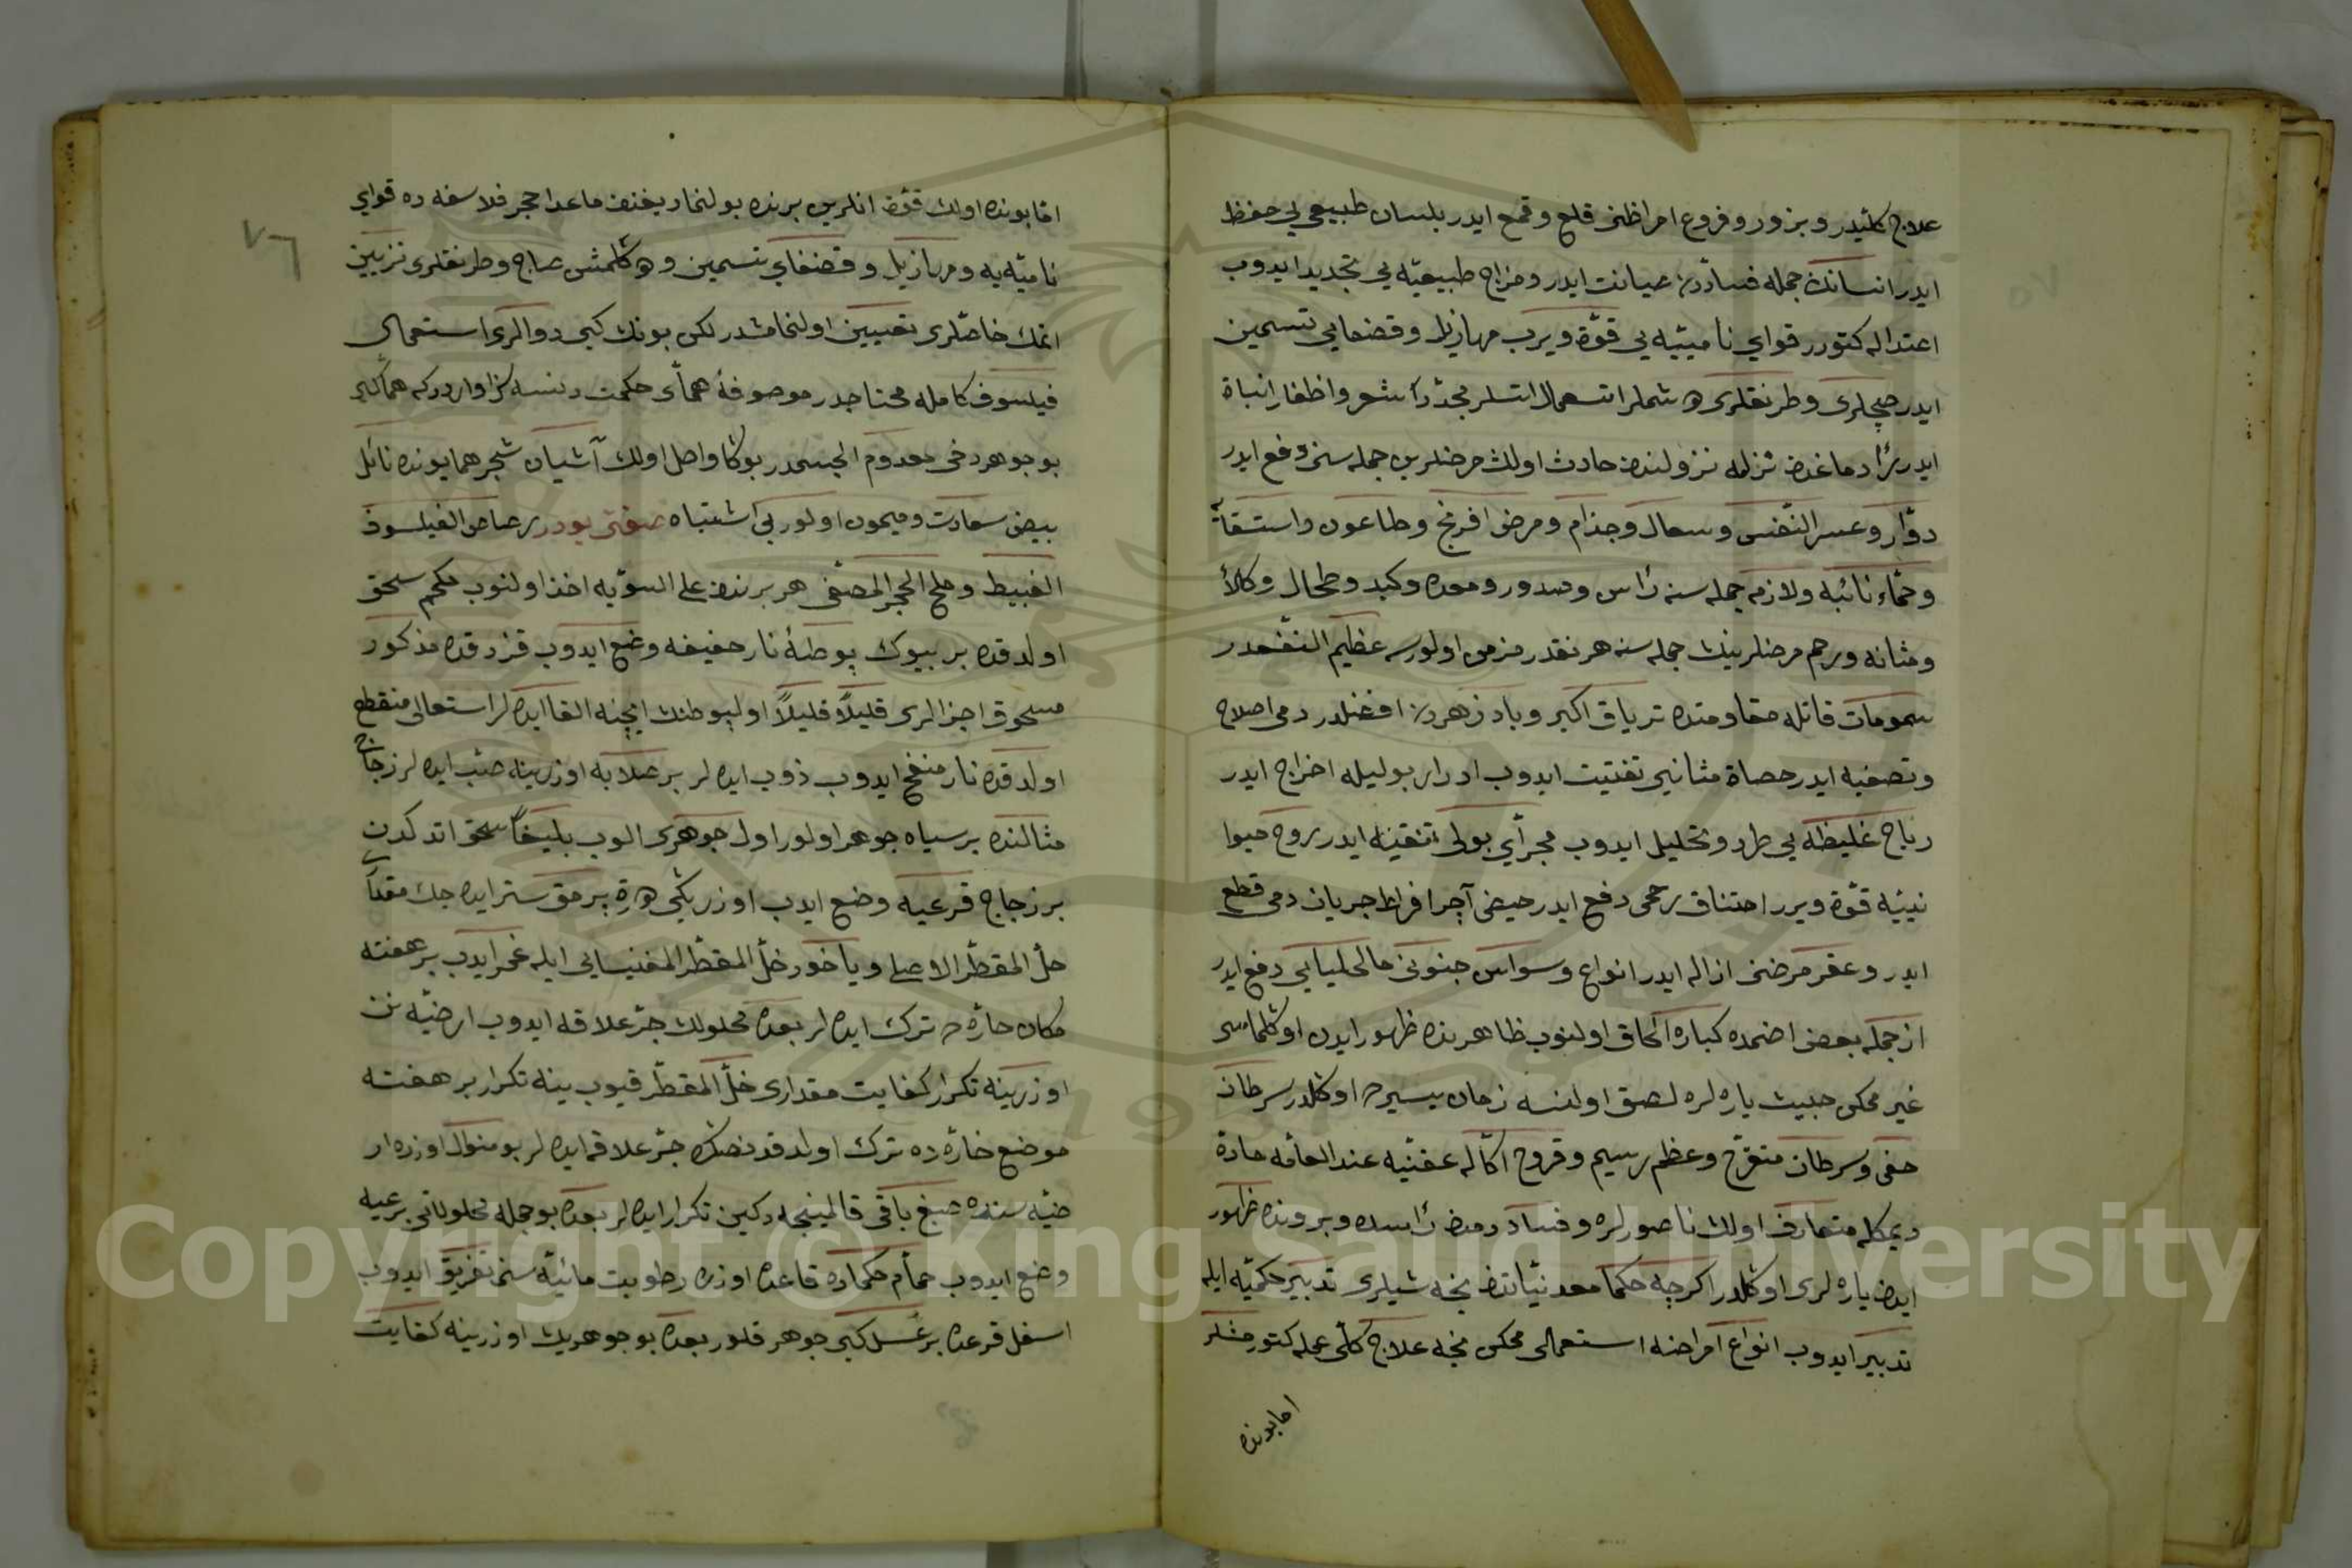 علاج كليدر وبزور وفروع امراظنی قلع وقمع ايدر بلسان طبيعی يی حفظ
ايدر انسانك جمله فساددن صيانت ايدر ومزاج طبيعيّه يی تجديد ايدوب
اعتداله كتورر قواي ناميّه يی قوّة ويرب مهازيل وقضفايی تسمين
ايدر صچلری وطرنقلری دوشملر استعمال اتسلر مجدّداً شعر واظفار انباة
ايدر دماغدن نزله نزولندن حادث اولان مرضلرين جمله سنی دفع ايدر
دوّار وعسر النّفس وسعال وجذام ومرض افرنج وطاعون واستسقا
وحمّاء نائبه ولازمه جمله سنه رأس وصدور ومعده وكبد وطحال وكلا
ومثانه ورحم مرضلرينك جمله سنه هر نقدر مزمن اولورسه عظيم النّفعدر
سمومات قاتله مقاومتده ترياق اكبر وبادزهردن افضلدر دمی اصلاح
وتصفيه ايدر حصاة مثانه يی تفتيت ايدوب ادرار بوليله اخراج ايدر
رياح غليظه يی طرد وتحليل ايدوب مجرای بولی تنقيه ايدر روح حيوا
نيّه قوّة ويرر اختناق رحمی دفع ايدر حيض آچر افراط جريان دمی قطع
ايدر وعقر مرضنی ازاله ايدر انواع وسواس جنونی مالخليايی دفع ايدر
از جمله بعض اضمده كباره الحاق اولنوب ظاهر بدنده ظهور ايدن اوكلماسی
غير ممكن خبيث ياره لره لصق اولنسه زمان يسيرده اوكلدر سرطان
خفی وسرطان متقرّح وعظم رسيم وقروح اكّاله عفنيه عند العامّه حادّة
ديمكله متعارف اولان ناصورلره وفساد دمدن رأسده وبدنده ظهور
ايدن ياره لری اوكلدر اكرچه حكما معدنيّاتدن نجه شيلری تدبير حكميّه ايله
تدبير ايدوب انواع امراضه استعمالی ممكن نجه علاج كلّی عمله كتورمشلر
اما بونده
اما بونده اولان قوّة انلرين برنده بولنماز يغنن ماعدا حجر فلاسفه ده قواي
ناميّه يه ومهازيل وقضفاي تسمين ودوكلمش صاچ وطرنقلری تزيين
اتمك خاصّلری تعيين اولنمامشدر لكن بونك كبی دوالری استعمال
فيلسوف كامله محتاجدر موصوفهٔ همای حكمت دنسه سزاواردر كه هما كبی
بو جوهر دخی معدوم الجسمدر بوكا واصل اولان آشيان شجر همايونده نائل
بيض سعادت وميمون اولور بی اشتباه صفتی بودر رصاص الفيلسوف
الغبيط وملح الحجر المصفّی هر برندن علی السّويه اخذ اولنوب محكم سحق
اولدقده بر بيوك پوطهٔ نار خفيفه وضع ايدوب قزدقده مذكور
مسحوق اجزالری قليلاً قليلاً اول پوطنك ايچنه القا ايده لر استعالی منقطع
اولدقده نار منفخ ايدوب ذوب ايده لر بر صلابه اوزرينه صبّ ايده لر زجاج
مثالنده بر سياه جوهر اولور اول جوهری الوب بليغاً سحق اتدكدن
بر زجاج قرعيه وضع ايدب اوزريكی درت پرمق ستر ايده جك مقدار
خلّ المقطّر الاصلی وياخود خلّ المقطّر المغنيسايی ايله غمر ايدب بر هفته
مكان حارّه ده ترك ايده لر بعده محلولك جرّ علاقه ايدوب ارضيّه نن
اوزرينه تكرار كفايت مقداری خلّ المقطّر قيوب ينه تكرار بر هفته
موضع حارّه ده ترك اولدقدنصكره جرّ علاقه ايده لر بو منوال اوزره ار
ضيّه سنده صبغ باقی قالمينجه دكين تكرار ايده لر بعده بو جمله محلولاتی بر قرعيه
وضع ايدوب حمّام حكماده قاعده اوزره رطوبت مائيّه سنی تفريق ايدوب
اسفل قرعده بر عسل كبی جوهر قلور بعده بو جوهرك اوزرينه كفايت
Copyright © King Saud University